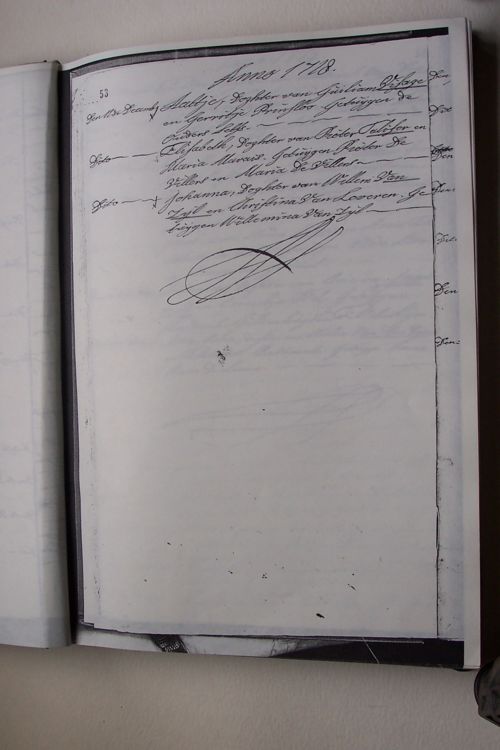 Anno 1718.
53
Den 11de Decemb, Aaltje, Doghter van Guiliam Visage
en Gerritje Prinsloo. Getuygen de
Ouders Selfs.
Dito Elisabeth, Doghter van Pieter Taljfer en
Maria Marais. Getuygen Pieter De
Villers en Maria De Villers
Dito Johanna, Doghter van Willem Van
Zyl en Christina Van Loveren. Ge
tuygen Willemina Van Zyl
Den